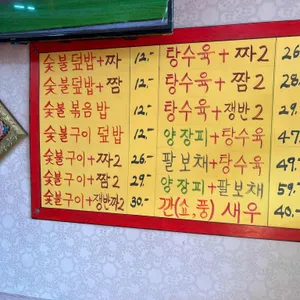 숯불덮밥+짜 12.-
숯불덮밥+짬 12.-
숯불볶음밥 12.-
숯불구이 덮밥 12.-
숯불구이+짜2 26.-
숯불구이+짬2 29.-
숯불구이+쟁반짜2 30.-
탕수육+짜2 26
탕수육+짬2 28
탕수육+쟁반2 29
양장피+탕수육 47
팔보채+탕수육 49
양장피+팔보채 59.
깐(쇼,풍)새우 40.